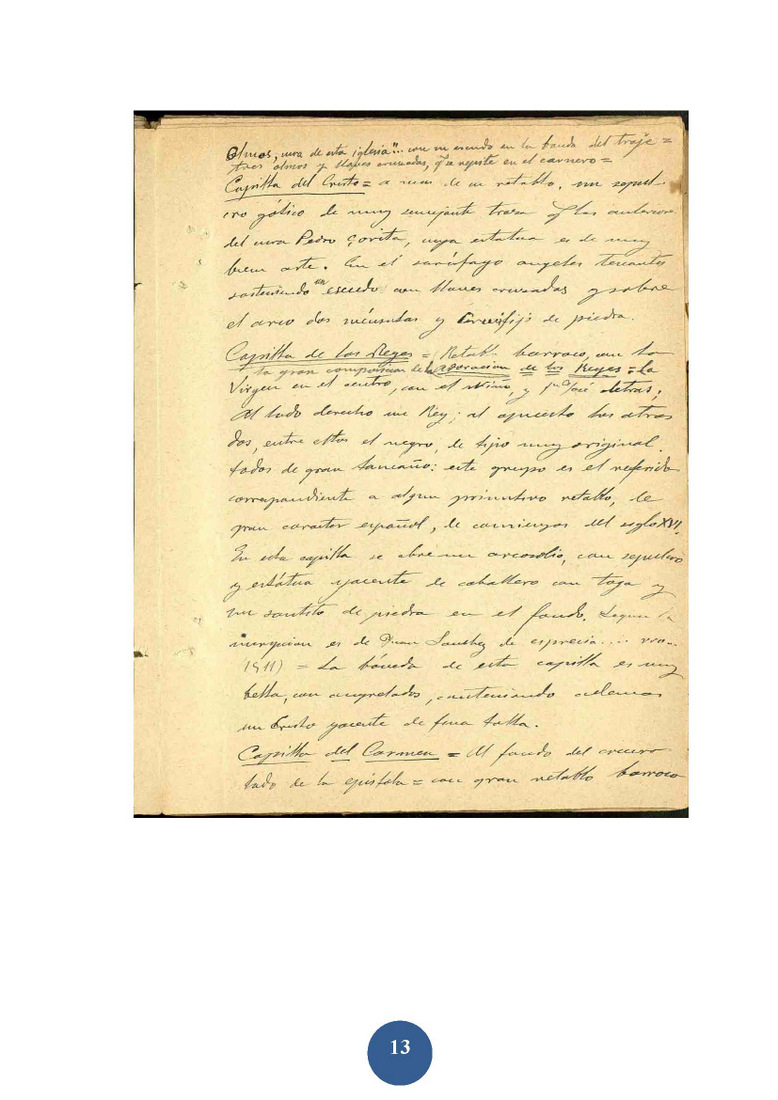 Olmos, cura de esta iglesia"... con su escudo en la banda del traje =
tres olmos y llaves cruzadas, q se repite en el carnero =
Capilla del Cristo = a mas de un retablo, un sepul-
cro gótico de muy semejante traza q los anteriores
del cura Pedro Çorita, cuya estatua es de muy
buen arte. En el sarcófago angeles tenantes
sosteniendo un escudo con llaves cruzadas y sobre
el arco dos ménsulas y Crucifijo de piedra.
Capilla de los Reyes = Retabl. barroco, con la
la gran composicion de la adoracion de los Reyes = La
Virgen en el centro, con el Niño, y Sn José detras,
Al lado derecho un Rey; al opuesto los otros
dos, entre ellos el negro, de tipo muy original
todos de gran tamaño: este grupo es el referido
correspondiente a algun primitivo retablo, de
gran caracter español, de comienzos del siglo XVI.
En esta capilla se abre un arcosolio, con sepulcro
y estátua yacente de caballero con toga y
un santito de piedra en el fondo. Segun la
inscripcion es de Juan Sanchez de
1511) = La bóveda de esta capilla es muy
bella, con angrelados, conteniendo ademas
un Cristo yacente de fina talla.
Capilla del Carmen = Al fondo del crucero
lado de la epístola = con gran retablo barroco
13